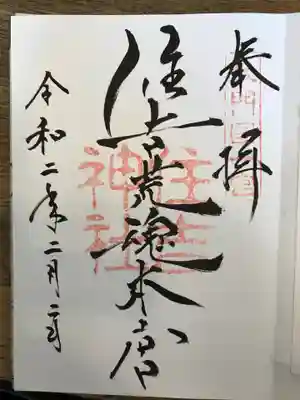 奉拝
住吉荒魂本宮
住吉
神社
令和二年二月二日